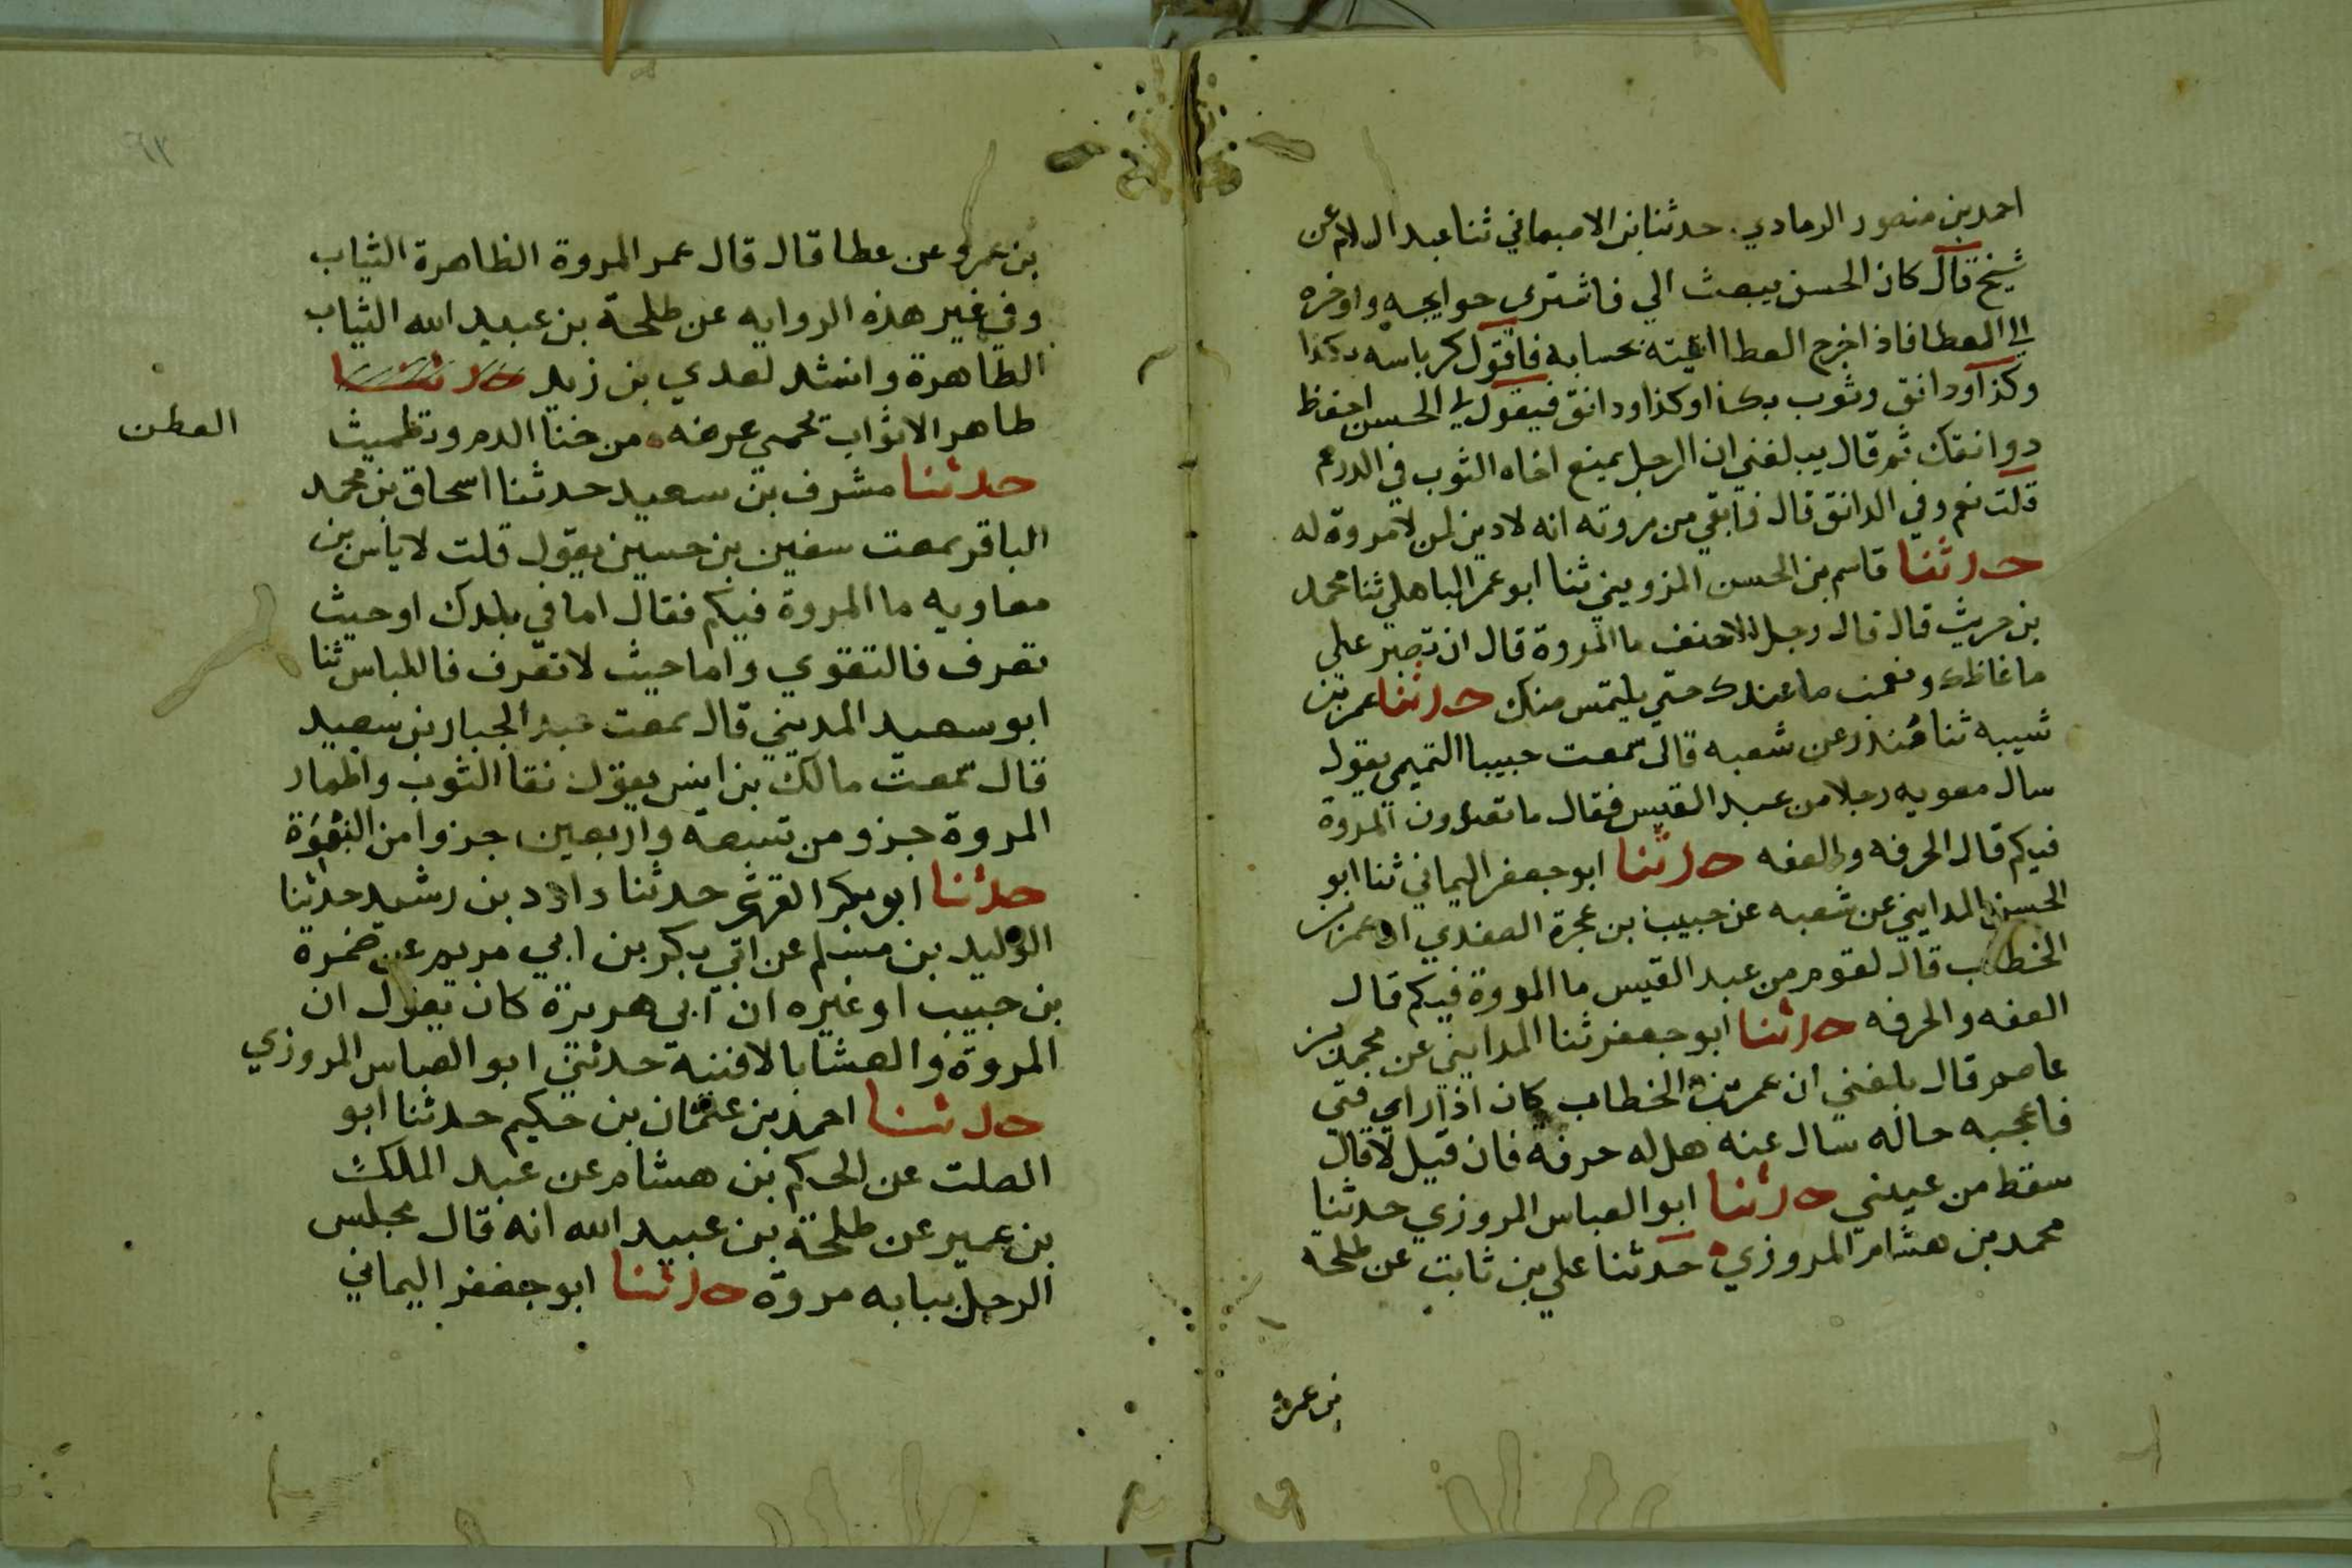 احمد بن منصور الرمادي حدثنا بن الاصبهاني ثنا عبد السلام عن
شيخ قال كان الحسن يبعث الي فاشتري حوايجه واوخره
الي العطا فاذا خرج العطا اتيته بحسابه فاقول كرباسه بكذا
وكذا ودانق وثوب بكذا وكذا ودانق فيقول لي الحسن احفظ
دوانقك ثم قال يبلغني ان الرجل يمنع اخاه الثوب في الدرهم
قلت نعم وفي الدانق قال فما بقي من مروته انه لا دين لمن لا مروة له
حدثنا قاسم بن الحسن المزويني ثنا ابو عمر الباهلي ثنا محمد
بن حريث قال قال رجل للاحنف ما المروة قال ان تصبر علي
ما غاظك وتصمت ما عندك حتي يلتمس منك حدثنا عمر بن
شيبه ثنا غندر عن شعبه قال سمعت حبيبا التميمي يقول
سال معويه رجلا من عبد القيس فقال ما تعدون المروة
فيكم قال الحرفه والعفه حدثنا ابو جعفر اليماني ثنا ابو
الحسن المدايني عن شعبه عن حبيب بن عجرة ان عمر بن
الخطاب قال لقوم من عبد القيس ما المروة فيكم قال
العفه والحرفه حدثنا ابو جعفر ثنا المدايني عن محمد بن
عاصم قال بلغني ان عمر بن الخطاب كان اذا راي فتي
فاعجبه حاله سال عنه هل له حرفة فان قيل لا قال
سقط من عيني حدثنا ابو العباس المروزي حدثنا
محمد بن هشام المروزي حدثنا علي بن ثابت عن طلحة
بن عمرو
٦٢
بن عمرو عن عطا قال قال عمر المروة الظاهرة الثياب
وفي غير هذه الروايه عن طلحة بن عبيد الله الثياب
الطاهرة وانشد لعدي بن زيد حدثنا
طاهر الاثواب يحمي عرضه من خنا الدم وتطميث
العطن
حدثنا مشرف بن سعيد حدثنا اسحاق بن محمد
الباقر سمعت سفين بن حسين يقول قلت لاياس بن
معاويه ما المروة فيكم فقال اما في بلدك او حيث
تعرف فالتقوي واما حيث لا تعرف فاللباس ثنا
ابو سعيد المديني قال سمعت عبد الجبار بن سعيد
قال سمعت مالك بن انس يقول نقا الثوب واظهار
المروة جزو من تسعة واربعين جزوا من النبوة
حدثنا ابو بكر القرشي حدثنا داود بن رشيد حدثنا
الوليد بن مسلم عن ابي بكر بن ابي مريم عن ضمرة
بن حبيب او غيره ان ابي هريرة كان يقول ان
المروة والعشا بالافنية حدثني ابو العباس المروزي
حدثنا احمد بن عثمان بن حكيم حدثنا ابو
الصلت عن الحكم بن هشام عن عبد الملك
بن عمير عن طلحة بن عبيد الله انه قال مجلس
الرجل ببابه مروة حدثنا ابو جعفر اليماني